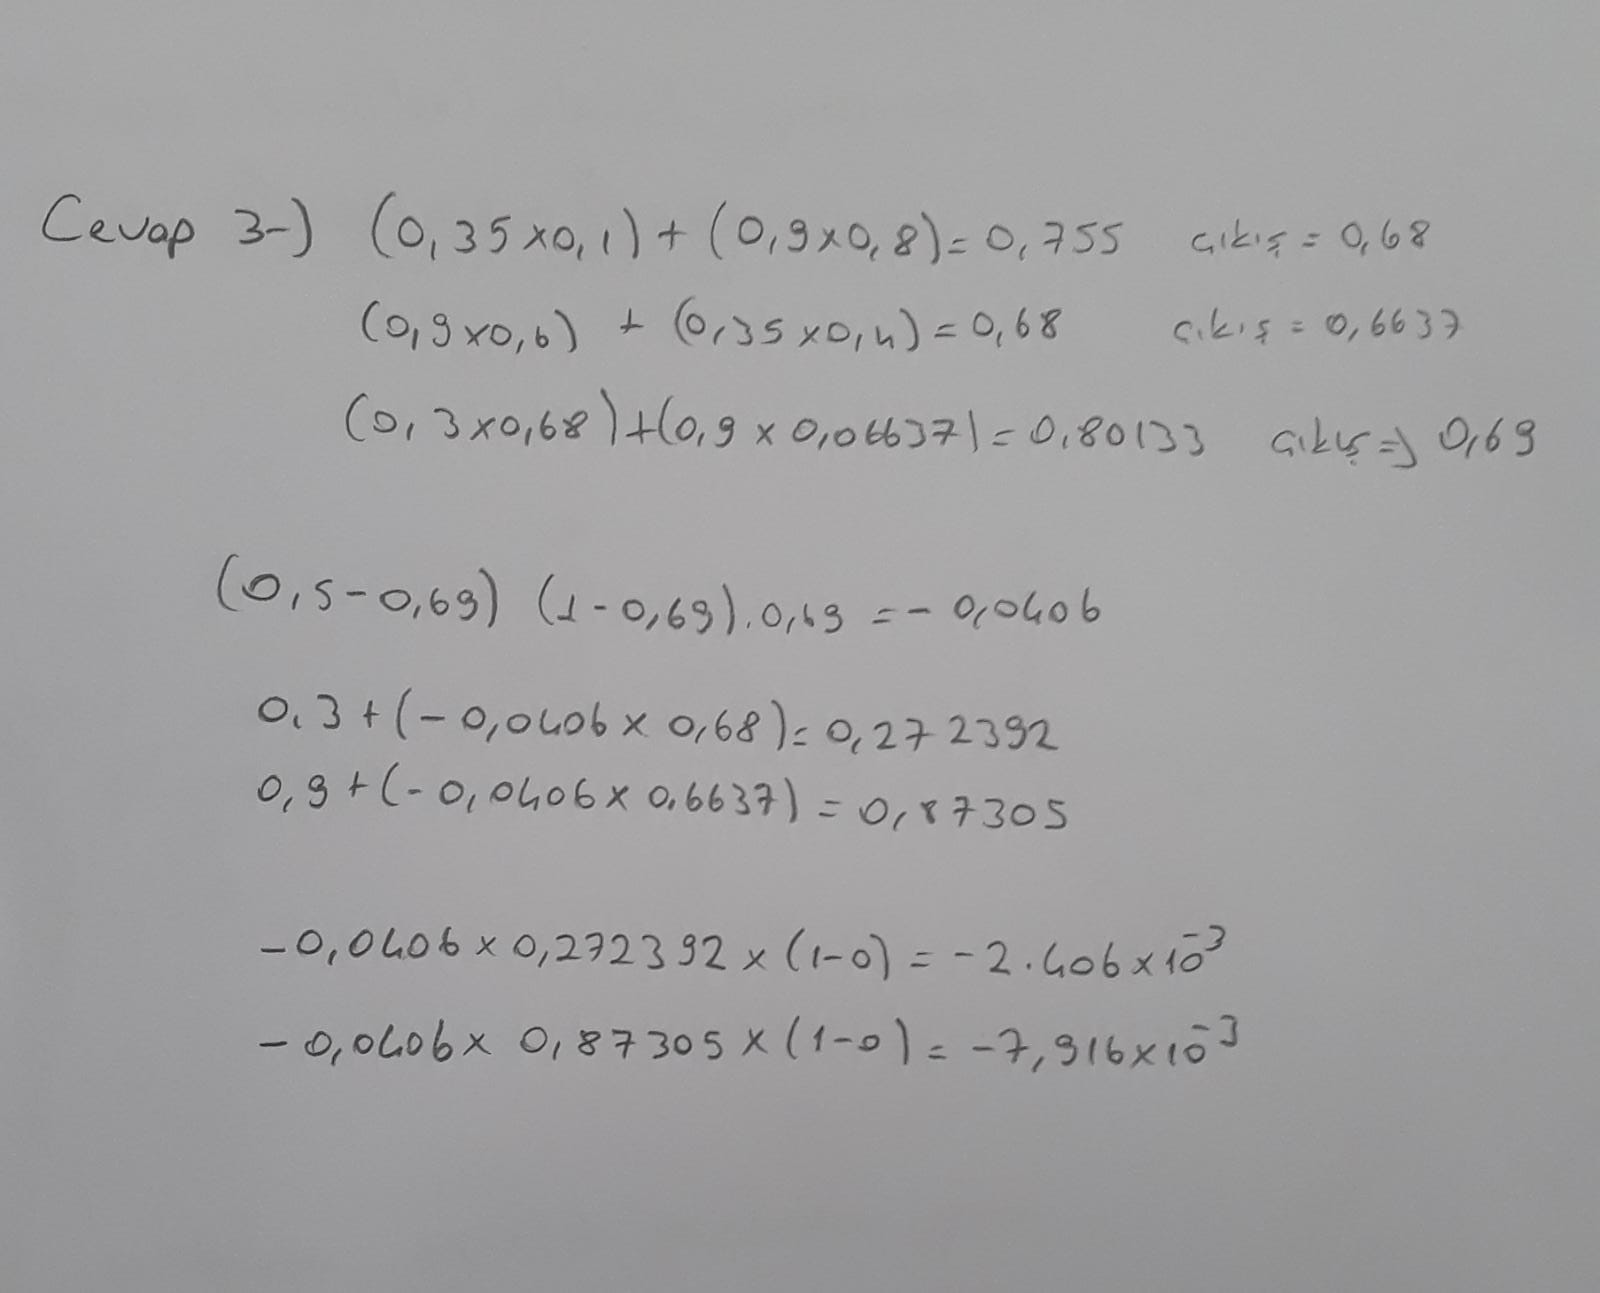 Cevap 3-) (0,35x0,1)+(0,9x0,8)=0,755 çıkış = 0,68
(0,9x0,6) + (0,35x0,4)=0,68 çıkış = 0,6637
(0,3x0,68)+(0,9x0,06637)=0,80133 çıkış => 0,69
(0,5-0,69) (1-0,69).0,69 = - 0,0406
0.3+(-0,0406x0,68)=0,272392
0,9+(-0,0406x0.6637)=0,87305
-0,0406x0,272392x(1-0)=-2.406x10⁻³
-0,0406x0,87305x(1-0)=-7,916x10⁻³